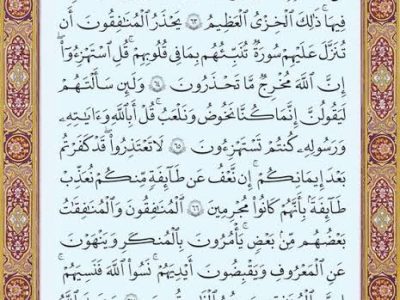 فِيهَا ۚ ذَٰلِكَ الْخِزْىُ الْعَظِيمُ ٦٣ يَحْذَرُ الْمُنَافِقُونَ أَن
تُنَزَّلَ عَلَيْهِمْ سُورَةٌ تُنَبِّئُهُم بِمَا فِى قُلُوبِهِمْ ۚ قُلِ اسْتَهْزِءُوٓا۟
إِنَّ اللَّهَ مُخْرِجٌ مَّا تَحْذَرُونَ ٦٤ وَلَئِن سَأَلْتَهُمْ
لَيَقُولُنَّ إِنَّمَا كُنَّا نَخُوضُ وَنَلْعَبُ ۚ قُلْ أَبِاللَّهِ وَءَايَٰتِهِۦ
وَرَسُولِهِۦ كُنتُمْ تَسْتَهْزِءُونَ ٦٥ لَا تَعْتَذِرُوا۟ قَدْ كَفَرْتُم
بَعْدَ إِيمَانِكُمْ ۚ إِن نَّعْفُ عَن طَآئِفَةٍ مِّنكُمْ نُعَذِّبْ
طَآئِفَةًۢ بِأَنَّهُمْ كَانُوا۟ مُجْرِمِينَ ٦٦ الْمُنَافِقُونَ وَالْمُنَافِقَاتُ
بَعْضُهُم مِّنۢ بَعْضٍ ۚ يَأْمُرُونَ بِالْمُنكَرِ وَيَنْهَوْنَ
عَنِ الْمَعْرُوفِ وَيَقْبِضُونَ أَيْدِيَهُمْ ۚ نَسُوا۟ اللَّهَ فَنَسِيَهُمْ ۗ